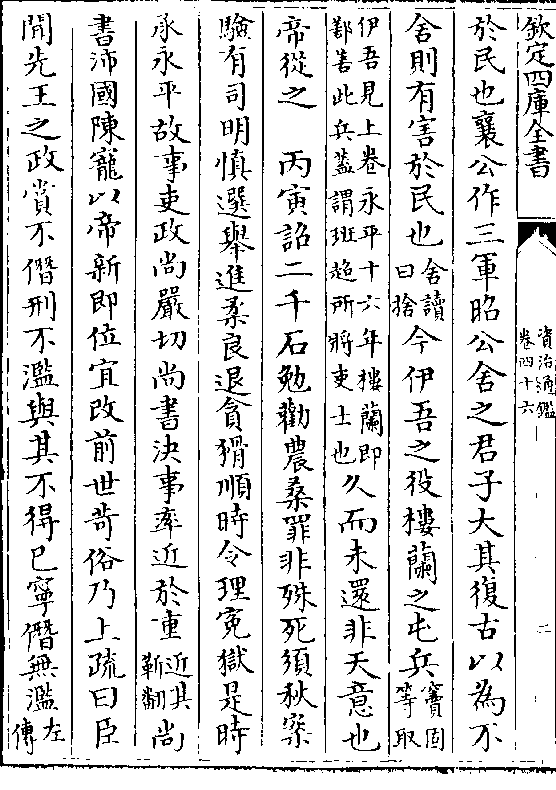 欽定四庫全書
資治通鑑
卷四十六
二
於民也襄公作三軍昭公舍之君子大其復古以為不
舍則有害於民也舍讀曰捨今伊吾之役樓蘭之屯兵竇固等取
伊吾見上卷永平十六年樓蘭即鄯善此兵蓋謂班超所將吏士也久而未還非天意也
帝從之 丙寅詔二千石勉勸農桑罪非殊死須秋案
驗有司明慎選舉進柔良退貪猾順時令理寃獄是時
承永平故事吏政尚嚴切尚書決事率近於重近其靳翻尚
書沛國陳寵以帝新即位宜改前世苛俗乃上疏曰臣
聞先王之政賞不僭刑不濫與其不得已寧僭無濫左傳